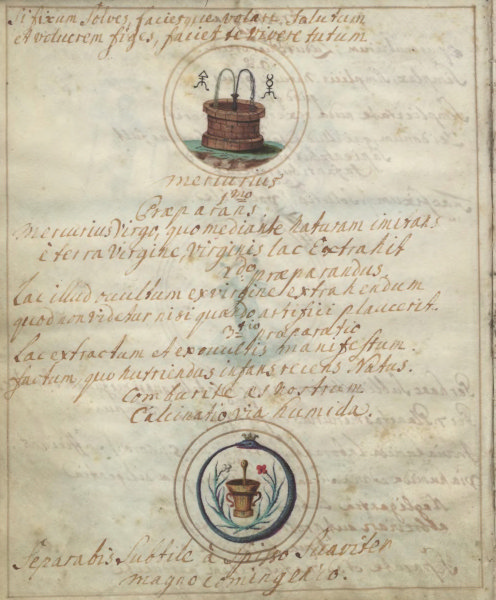 Si fixum Solves, faciesque volare, Salutum
Et volucrem figes, faciet te vivere tutum
mercurius
1mo
Præparans
Mercurius Virgo, quo mediante naturam imitans
è terra virgine, virginis lac Extrahit
2do præparandus
Lac illud occultum ex virgine extrahendum
quod non videtur nisi quando artifici placuerit.
3tio præparatio
Lac extractum et ex occultis manifestum
factum, quo nutriendus infans recens Natus.
Comburite æs nostrum
Calcinatio via humida.
Separabis Subtile à Spisso Suaviter
magno cum ingenio.